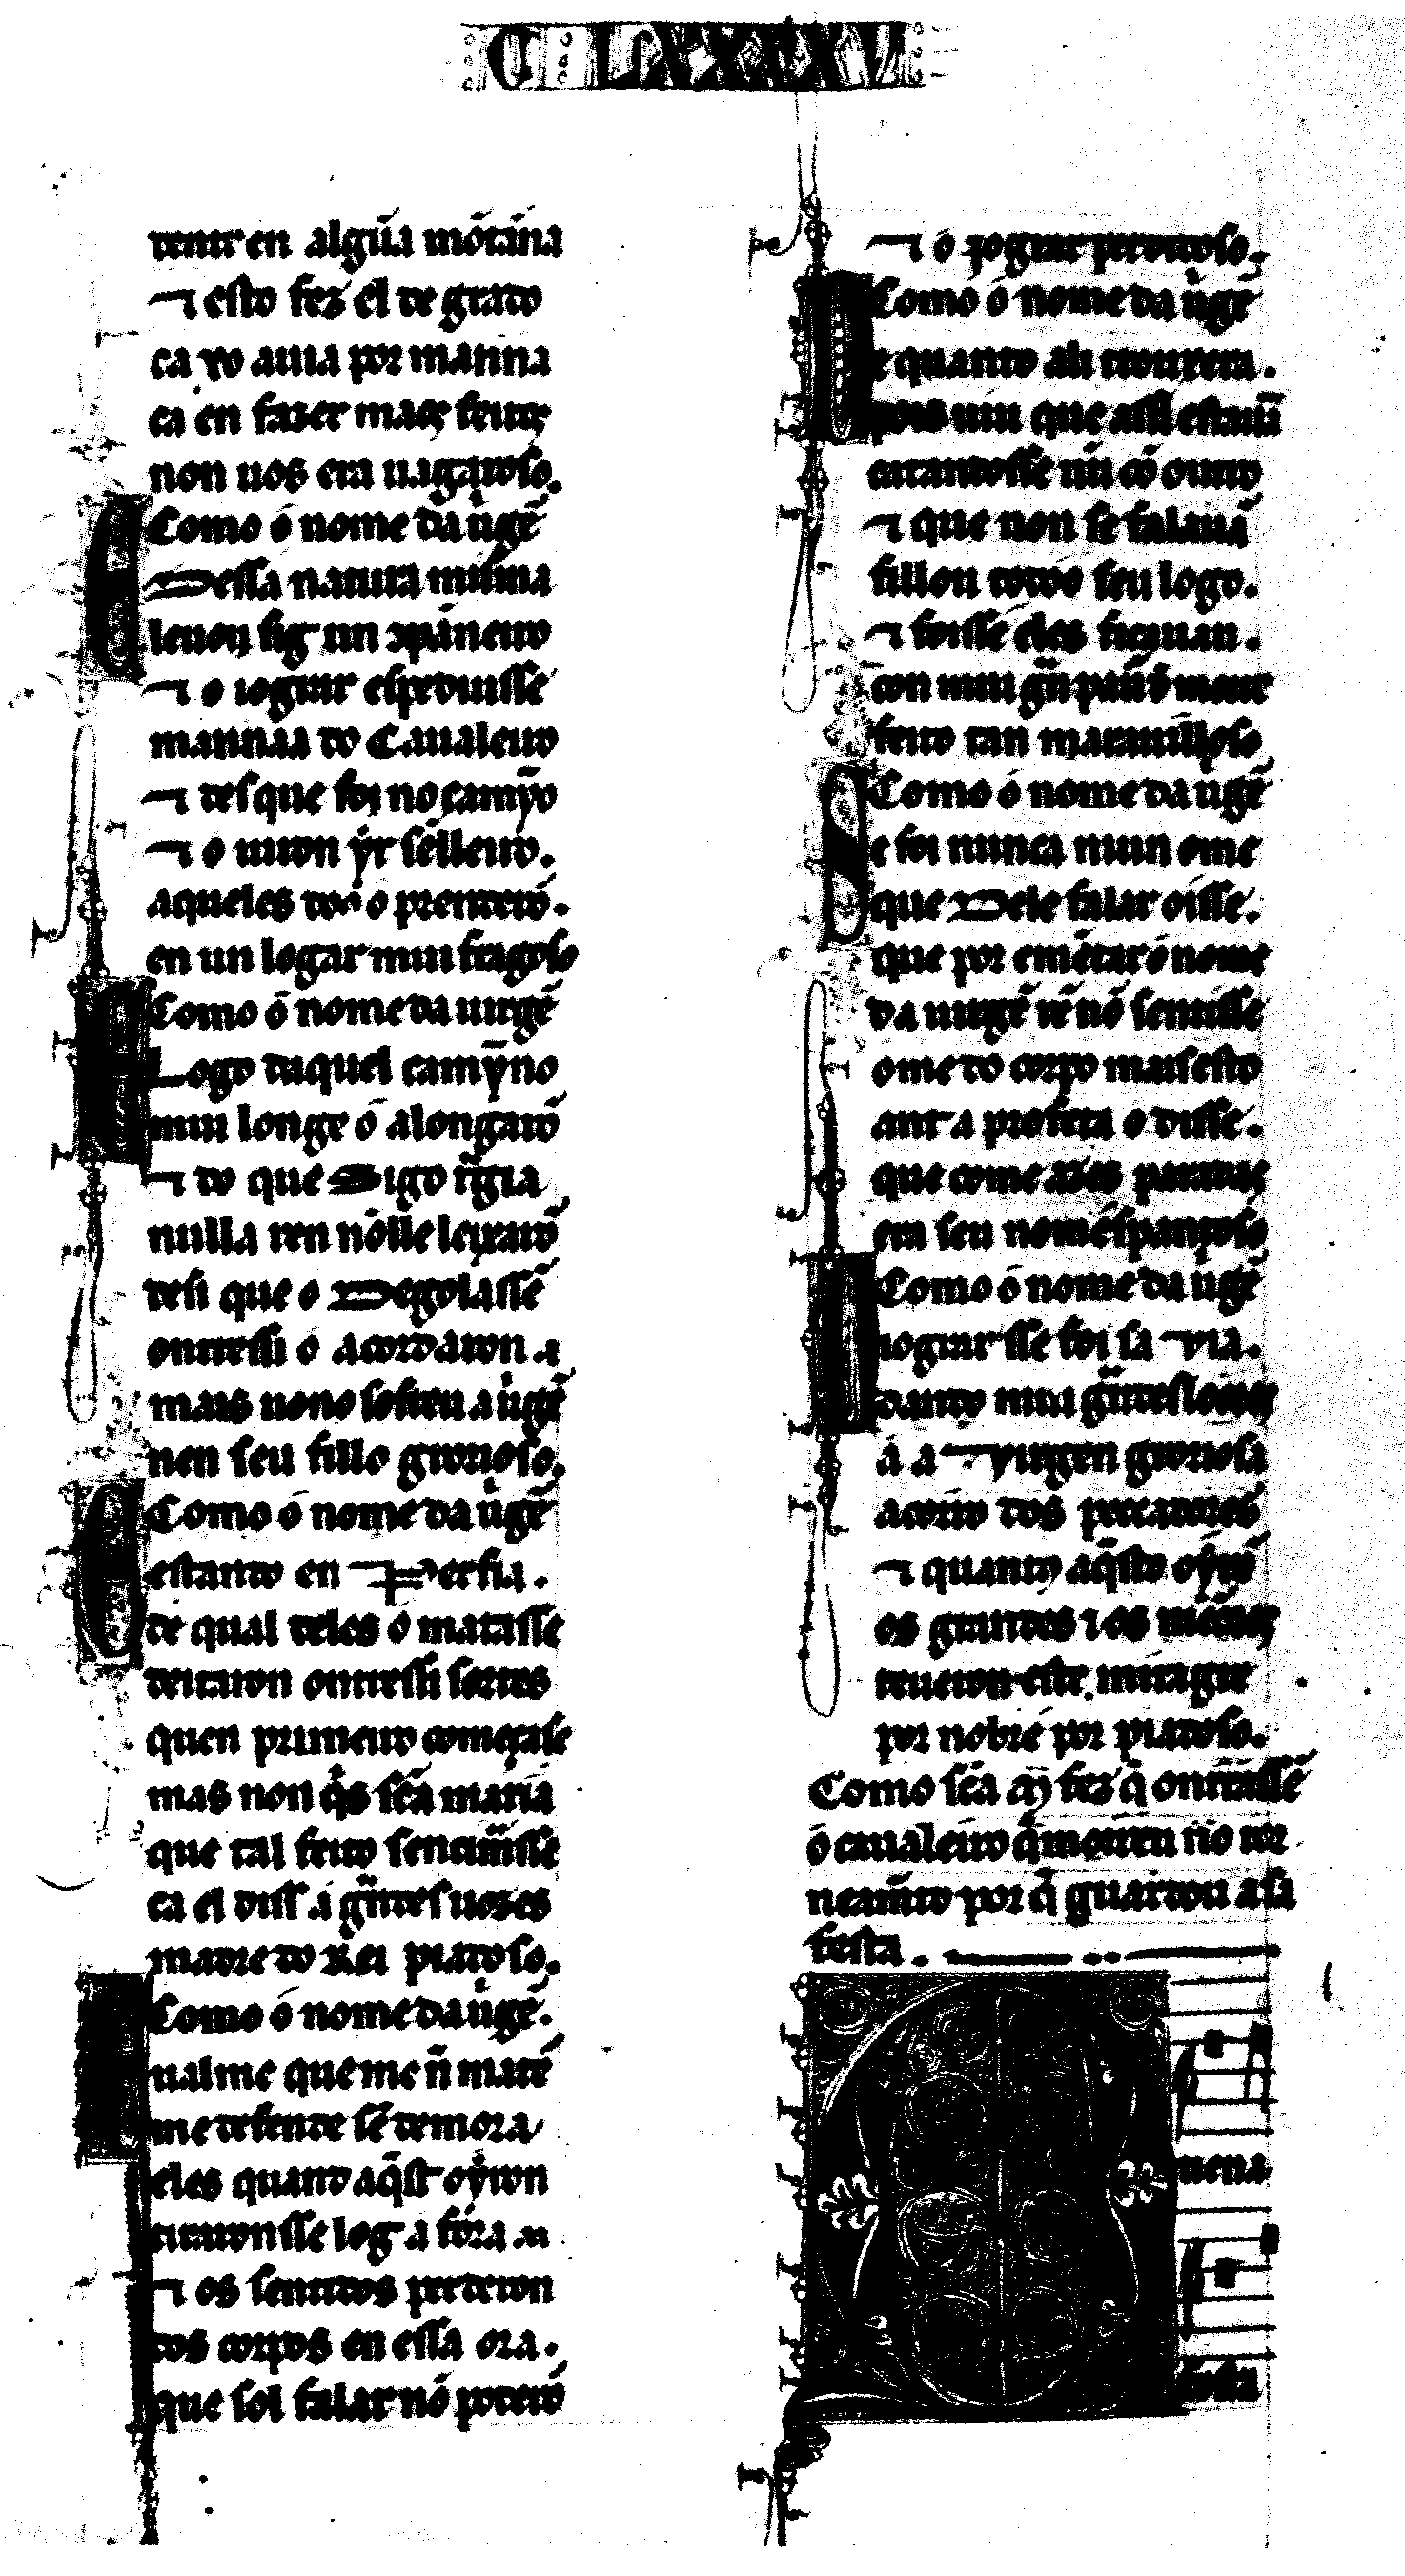 C LXXXXV
tenir en algũa mõtãna
⁊ esto fez el de grado
ca o auia por manna
ca en fazer maes feitos
non uos era uagaroso.
Como o nome da uı̃gẽ
Dessa natura mı̃ma
leuou sig un ſpı̃neiro
⁊ o iograr espediuisse
mannaa do Caualeiro
⁊ desque foi no camỹo
⁊ o uiron ýr sẽlleiro.
aqueles doo o prenderõ.
en un logar mui fragoso
Como o nome da uirgẽ
Logo daquel camỹno
mui longe o alongarõ
⁊ do que sigo tr̃gia
nulla ren nõlle leixarõ
desi que o Degolassẽ
ontressi o acordaron
mais nono sofreu a uı̃gẽ
nen seu fillo grorioso.
Como o nome da uı̃gẽ
estando en Perfia.
de qual deles o matasse
deitaron ontressi sortes
quen primeiro começasse
mas non q̃s sc̃a maria
que tal feito sencimĩsse
ca el diss a g̃ndes uozes
madre do Rei piadoso.
Como o nome da uı̃gẽ.
ualme que me ñ matẽ
me defende sẽ demora
eles quand aq̃st oýron
tiraronsse log a fora
⁊ os sentidos perderon
dos corpos en essa ora.
que sol falar nõ poderõ
⁊ o jograr perdidoso.
Como o nome da uı̃gẽ
e quanto ali trouxera.
pois uiu que assi estauã
catandosse uũ cõ outro
⁊ que non se falauã
fillou todo o seu logo.
⁊ foisse eles ficauan.
con mui g̃n pauor
feito tan marauilloso
Como o nome da uı̃gẽ
e foi nunca niun ome
que Dele falar oisse.
que por emẽtar o nome
da uirgẽ rẽ nõ sentisse
ome do corpo mais esto
ant a profeta o disse.
que come azes paradas
era seu nomẽ spantoso
Como o nome da uı̃gẽ
iograr sse foi sa uia.
dando mui g̃ndes loores
a a uirgen groriosa
acorro dos pecadores
⁊ quando aq̃sto oýrõ
os grandes ⁊ os mẽores
teueron este miragre
por nobre por piadoso.
Como sc̃a m̃ fez q̃ ontrassẽ
o caualeiro q̃ morreu no tor
neamẽto por q̃ guardou a sa
festa.
uena